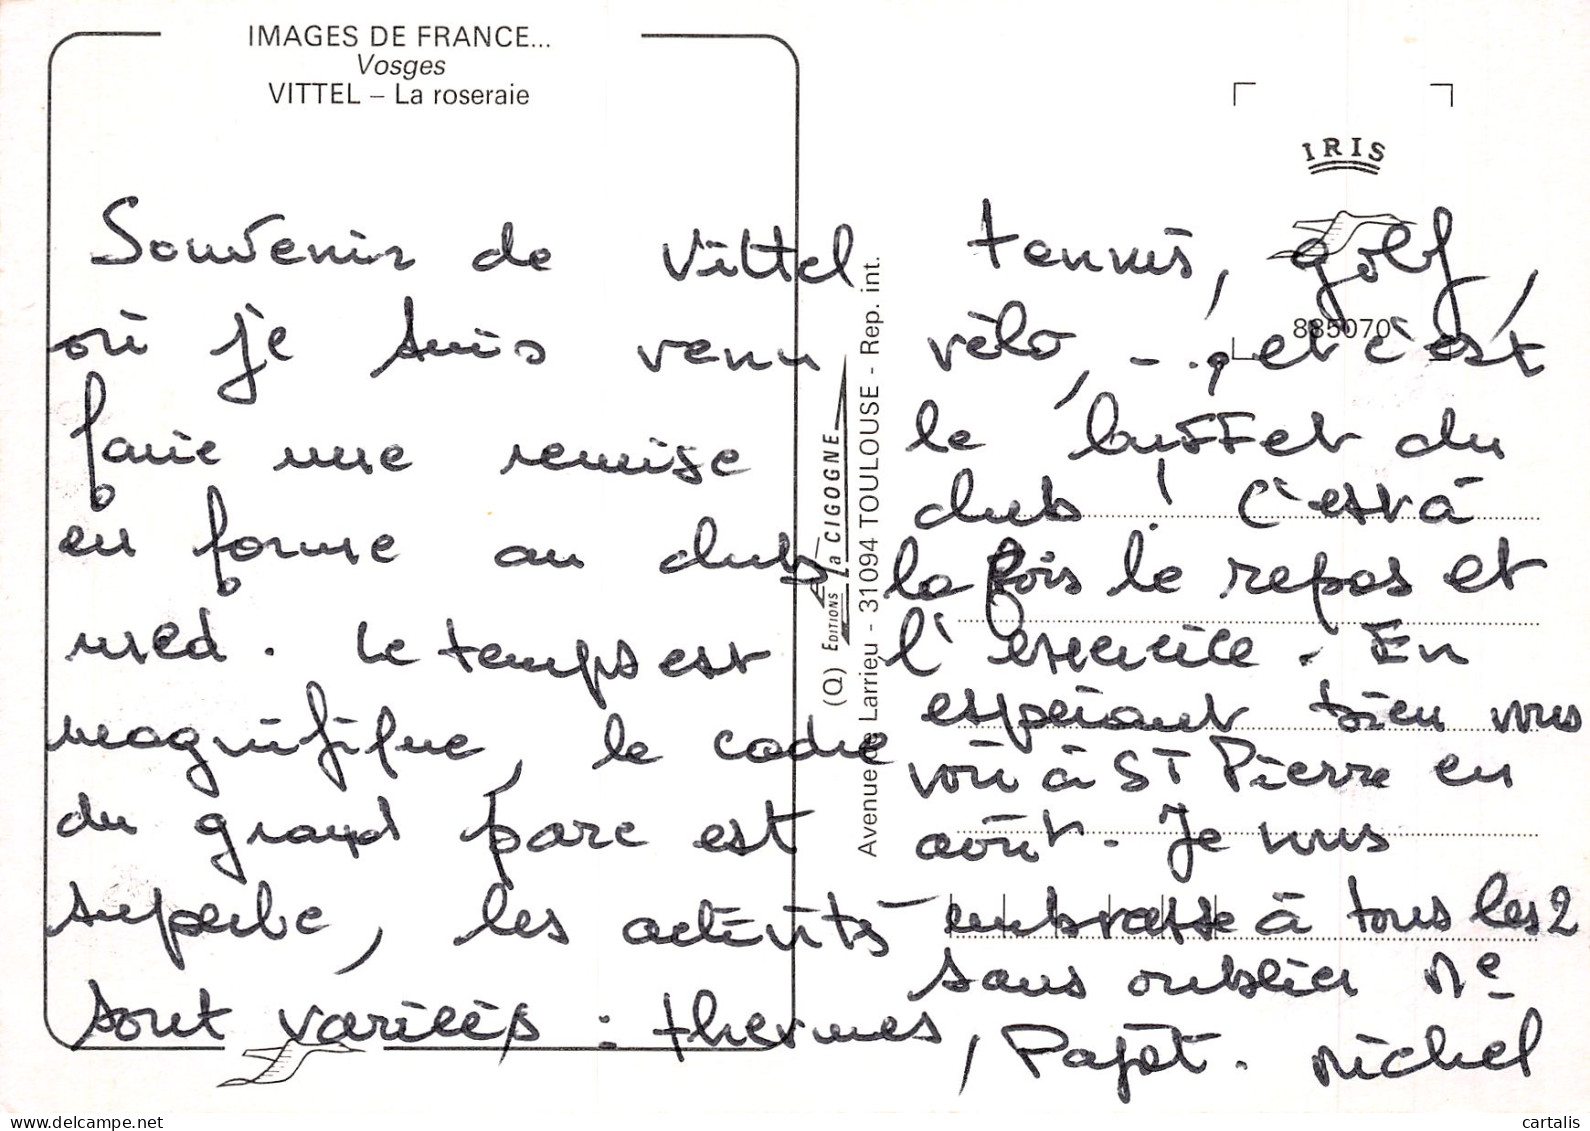 IMAGES DE FRANCE...
Vosges
VITTEL – La roseraie
Souvenir de Vittel
où je suis venu
faire une remise
en forme au club
med. Le temps est
magnifique, le cadre
du grand parc est
superbe, les activités
sont variées : thermes,
(Q) EDITIONS La CIGOGNE
Avenue de Larrieu - 31094 TOULOUSE - Rep. int.
IRIS
885070
tennis, golf,
vélo, -., et c'est
le buffet du
club ! C'est à
la fois le repos et
l'exercice. En
espérant bien vous
voir à St Pierre en
août. Je vous
embrasse à tous les 2
sans oublier Me
Pajot. Michel
cartalis